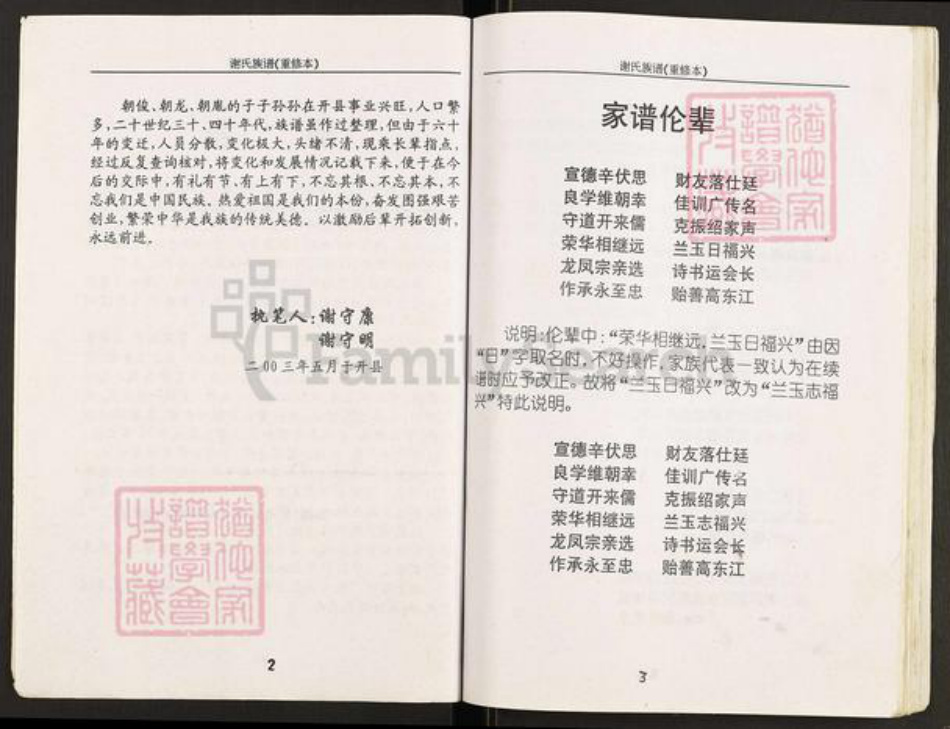 谢氏族谱(重修本)
朝俊、朝龙、朝胤的子子孙孙在开县事业兴旺,人口繁
多,二十世纪三十、四十年代,族谱虽作过整理,但由于六十
年的变迁,人员分散,变化极大,头绪不清,现乘长辈指点,
经过反复查询核对,将变化和发展情况记载下来,便于在今
后的交际中,有礼有节、有上有下,不忘其根、不忘其本,不
忘我们是中国民族。热爱祖国是我们的本份,奋发图强艰苦
创业,繁荣中华是我族的传统美德。以激励后辈开拓创新,
永远前进。
执笔人:谢守康
谢守明
二00三年五月于开县
FamilySearch
猶他家
譜學會
收藏
2
谢氏族谱(重修本)
家谱伦辈
猶他家
譜學會
收藏
宣德辛伏思 财友落仕廷
良学维朝幸 佳训广传名
守道开来儒 克振绍家声
荣华相继远 兰玉日福兴
龙凤宗亲选 诗书运会长
作承永至忠 贻善高东江
说明:伦辈中:“荣华相继远,兰玉日福兴”由因
“日”字取名时,不好操作,家族代表一致认为在续
谱时应予改正。故将“兰玉日福兴”改为“兰玉志福
兴”特此说明。
宣德辛伏思 财友落仕廷
良学维朝幸 佳训广传名
守道开来儒 克振绍家声
荣华相继远 兰玉志福兴
龙凤宗亲选 诗书运会长
作承永至忠 贻善高东江
3